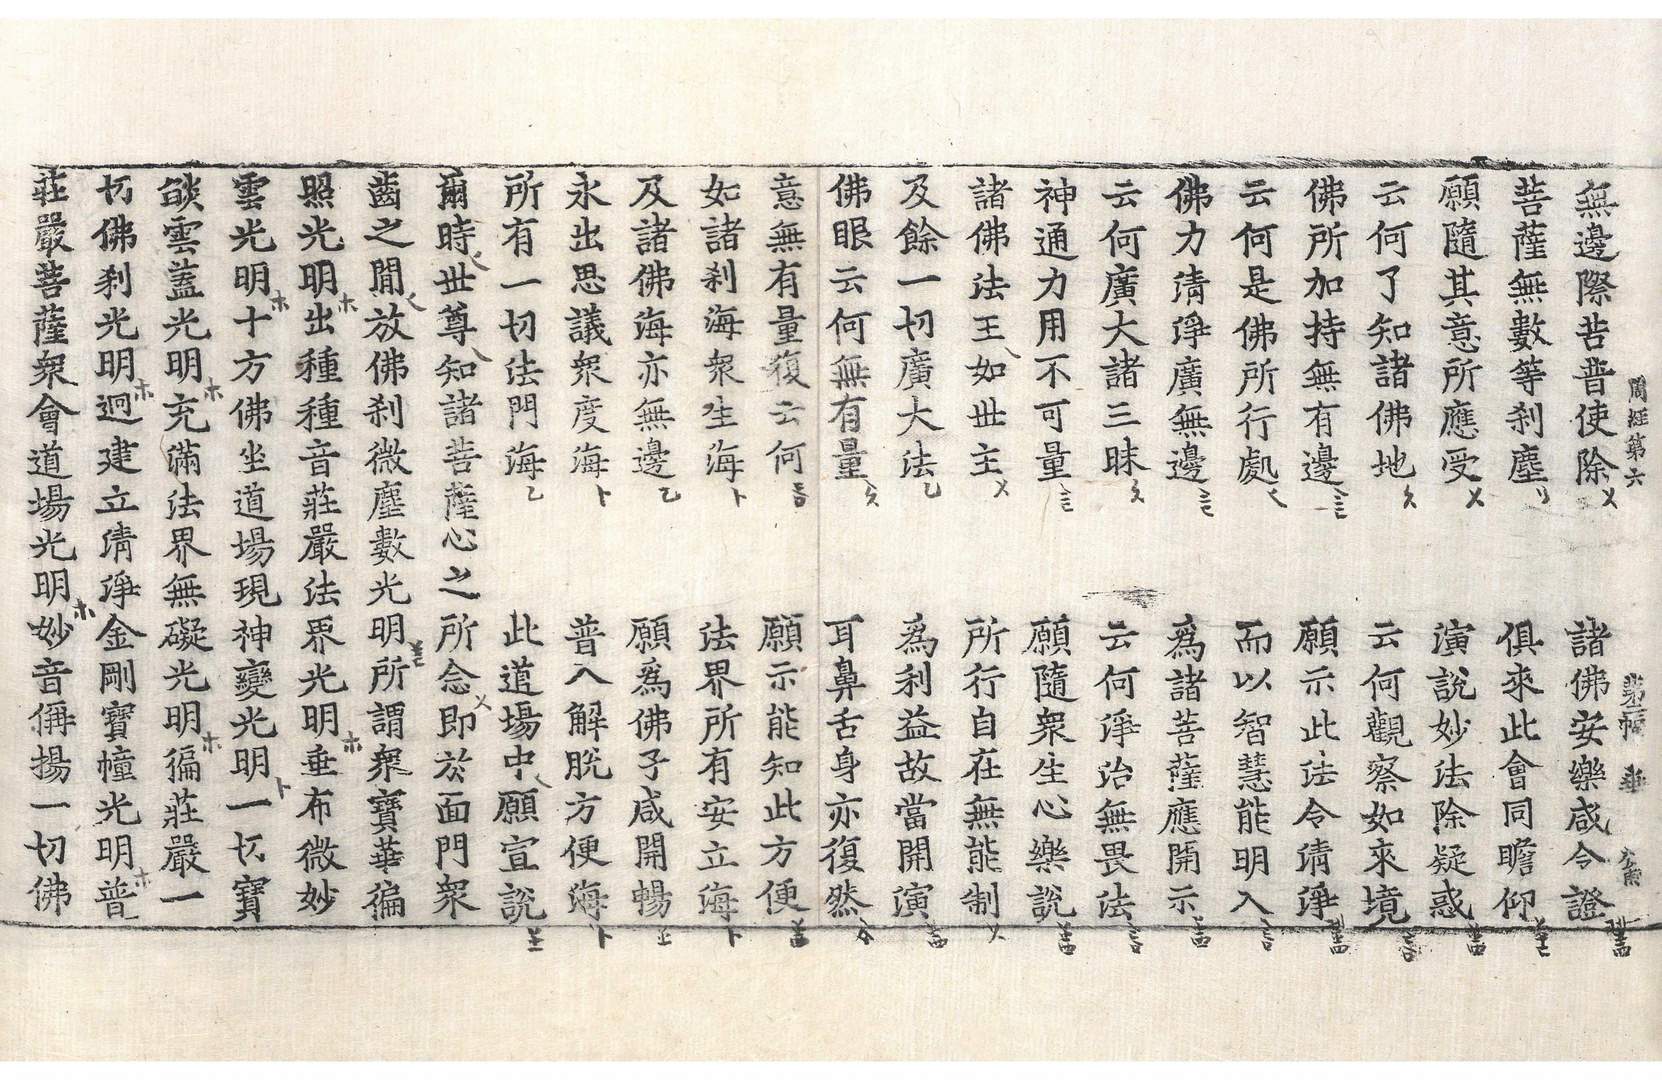 周經第六　第二幅　華　公隨
無邊際苦普使除　諸佛安樂咸令證
菩薩無數等刹塵　俱來此會同瞻仰
願隨其意所應受　演說妙法除疑惑
云何了知諸佛地　云何觀察如來境
佛所加持無有邊　願示此法令淸淨
云何是佛所行處　而以智慧能明入
佛力淸淨廣無邊　爲諸菩薩應開示
云何廣大諸三昧　云何淨治無畏法
神通力用不可量　願隨衆生心樂說
諸佛法王如世主　所行自在無能制
及餘一切廣大法　爲利益故當開演
佛眼云何無有量　耳鼻舌身亦復然
意無有量復云何　願示能知此方便
如諸刹海衆生海　法界所有安立海
及諸佛海亦無邊　願爲佛子咸開暢
永出思議衆度海　普入解脫方便海
所有一切法門海　此道場中願宣說
爾時世尊知諸菩薩心之所念即於面門衆
齒之間放佛刹微塵數光明所謂衆寶華徧
照光明出種種音莊嚴法界光明垂布微妙
雲光明十方佛坐道場現神變光明一切寶
燄雲蓋光明充滿法界無礙光明徧莊嚴一
切佛刹光明逈建立淸淨金剛寶幢光明普
莊嚴菩薩衆會道場光明妙音偁揚一切佛